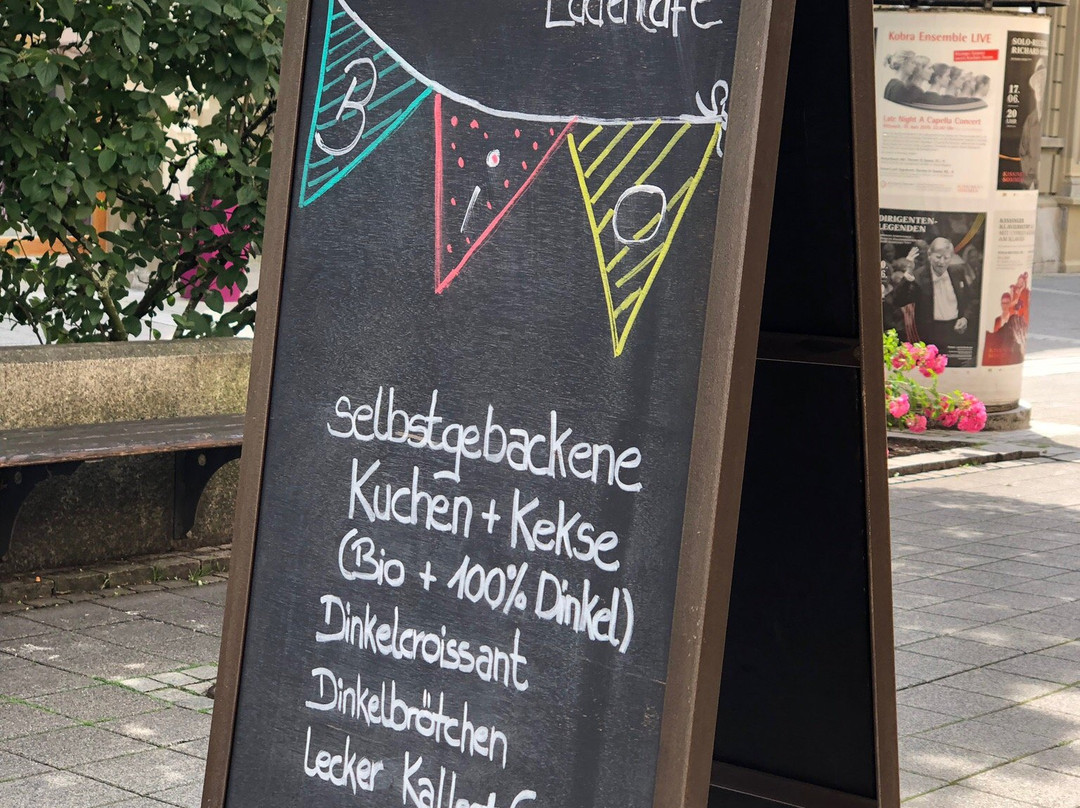 Ladencafé
B
i
O
selbstgebackene
Kuchen + Kekse
(Bio + 100% Dinkel)
Dinkelcroissant
Dinkelbrötchen
Lecker
Kobra Ensemble LIVE
Late Night A Cappella Concert
SOLO-
RICHARD
17.
06.
20
DIRIGENTEN-
LEGENDEN